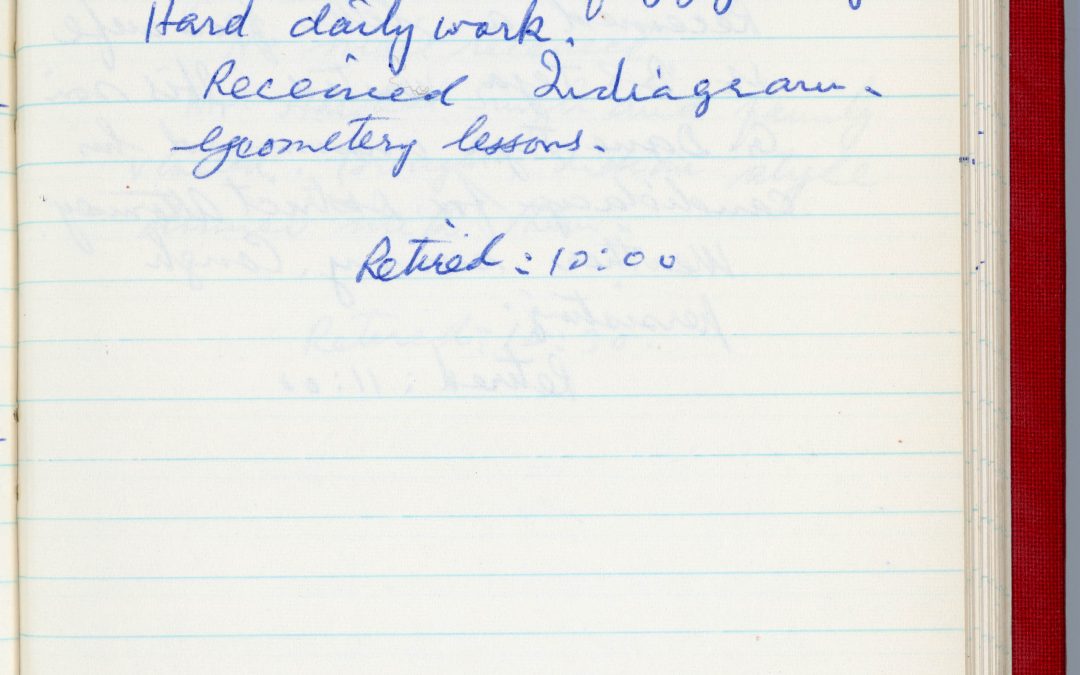 Hard daily work.
Received Indiagram.
Geometery lessons.
Retired : 10:00